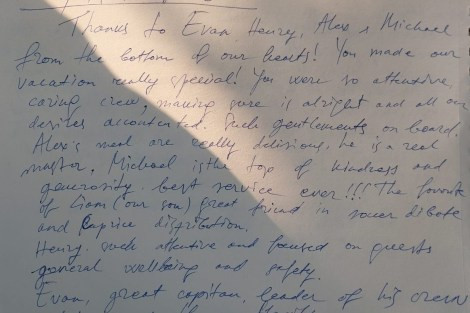 Thanks to Evan Henry, Alex & Michael
from the bottom of our hearts! You made our
vacation really special! You were so attentive
caring crew, making sure is alright and all our
desires accountented. Such gentlements on board.
Alex's meal are really delisious, he is a real
master. Michael is the top of kindness and
generosity. best service ever!!! The favorite
of Liam (our son) great friend in soccer dibate
and Caprice distribution.
Henry. such attentive and focused on guests
general wellbeing and safety.
Evan, great capitan, leader of his crew